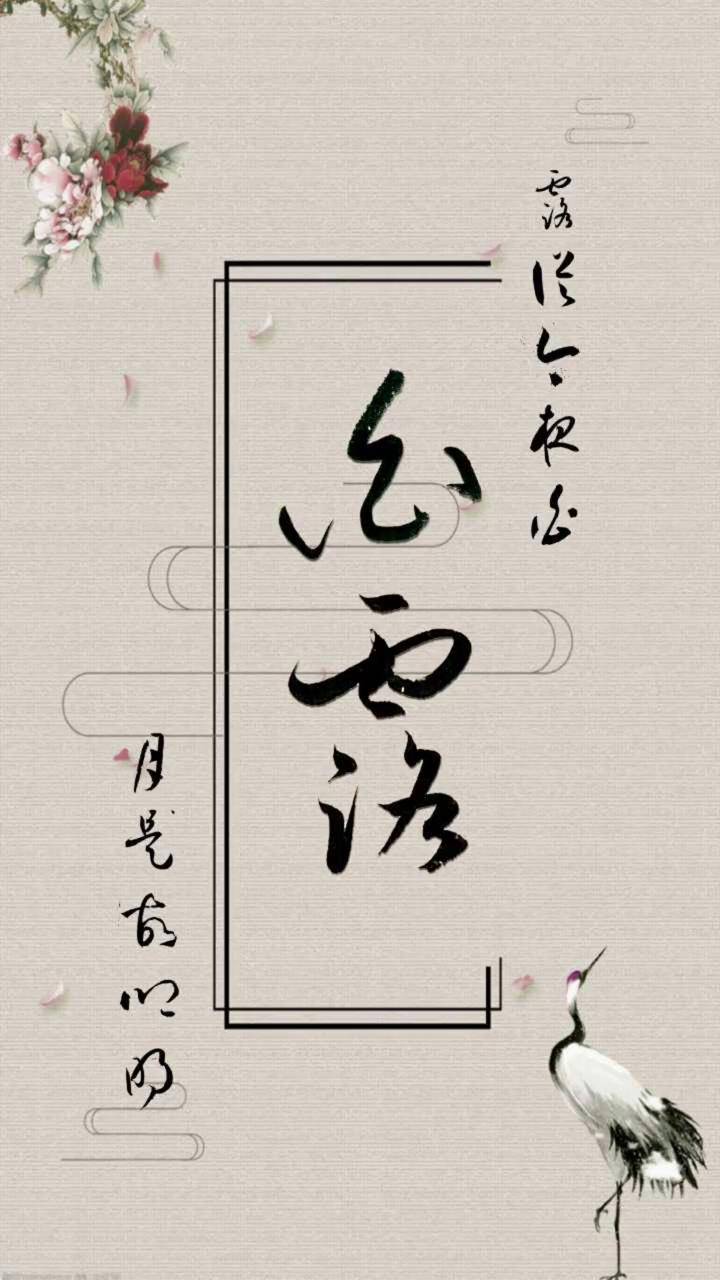 露從今夜白
白露
月是故鄉明